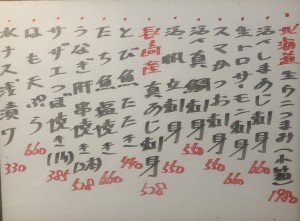 北海道生ウニつまみ(小箱) 1980
活〆しまあじ刺身 660
生トロサーモン刺身 660
スマかつお刺身 550
活〆真鯛刺身 550
活帆立刺身 550
長崎産真あじ刺身 528
とび魚たたき 440
たち魚塩焼き 660
うなぎ肝串焼き(2本) 528
サザエつぼ焼き(1ヶ) 385
はも天ぷら 660
水ナス浅漬ケ 330